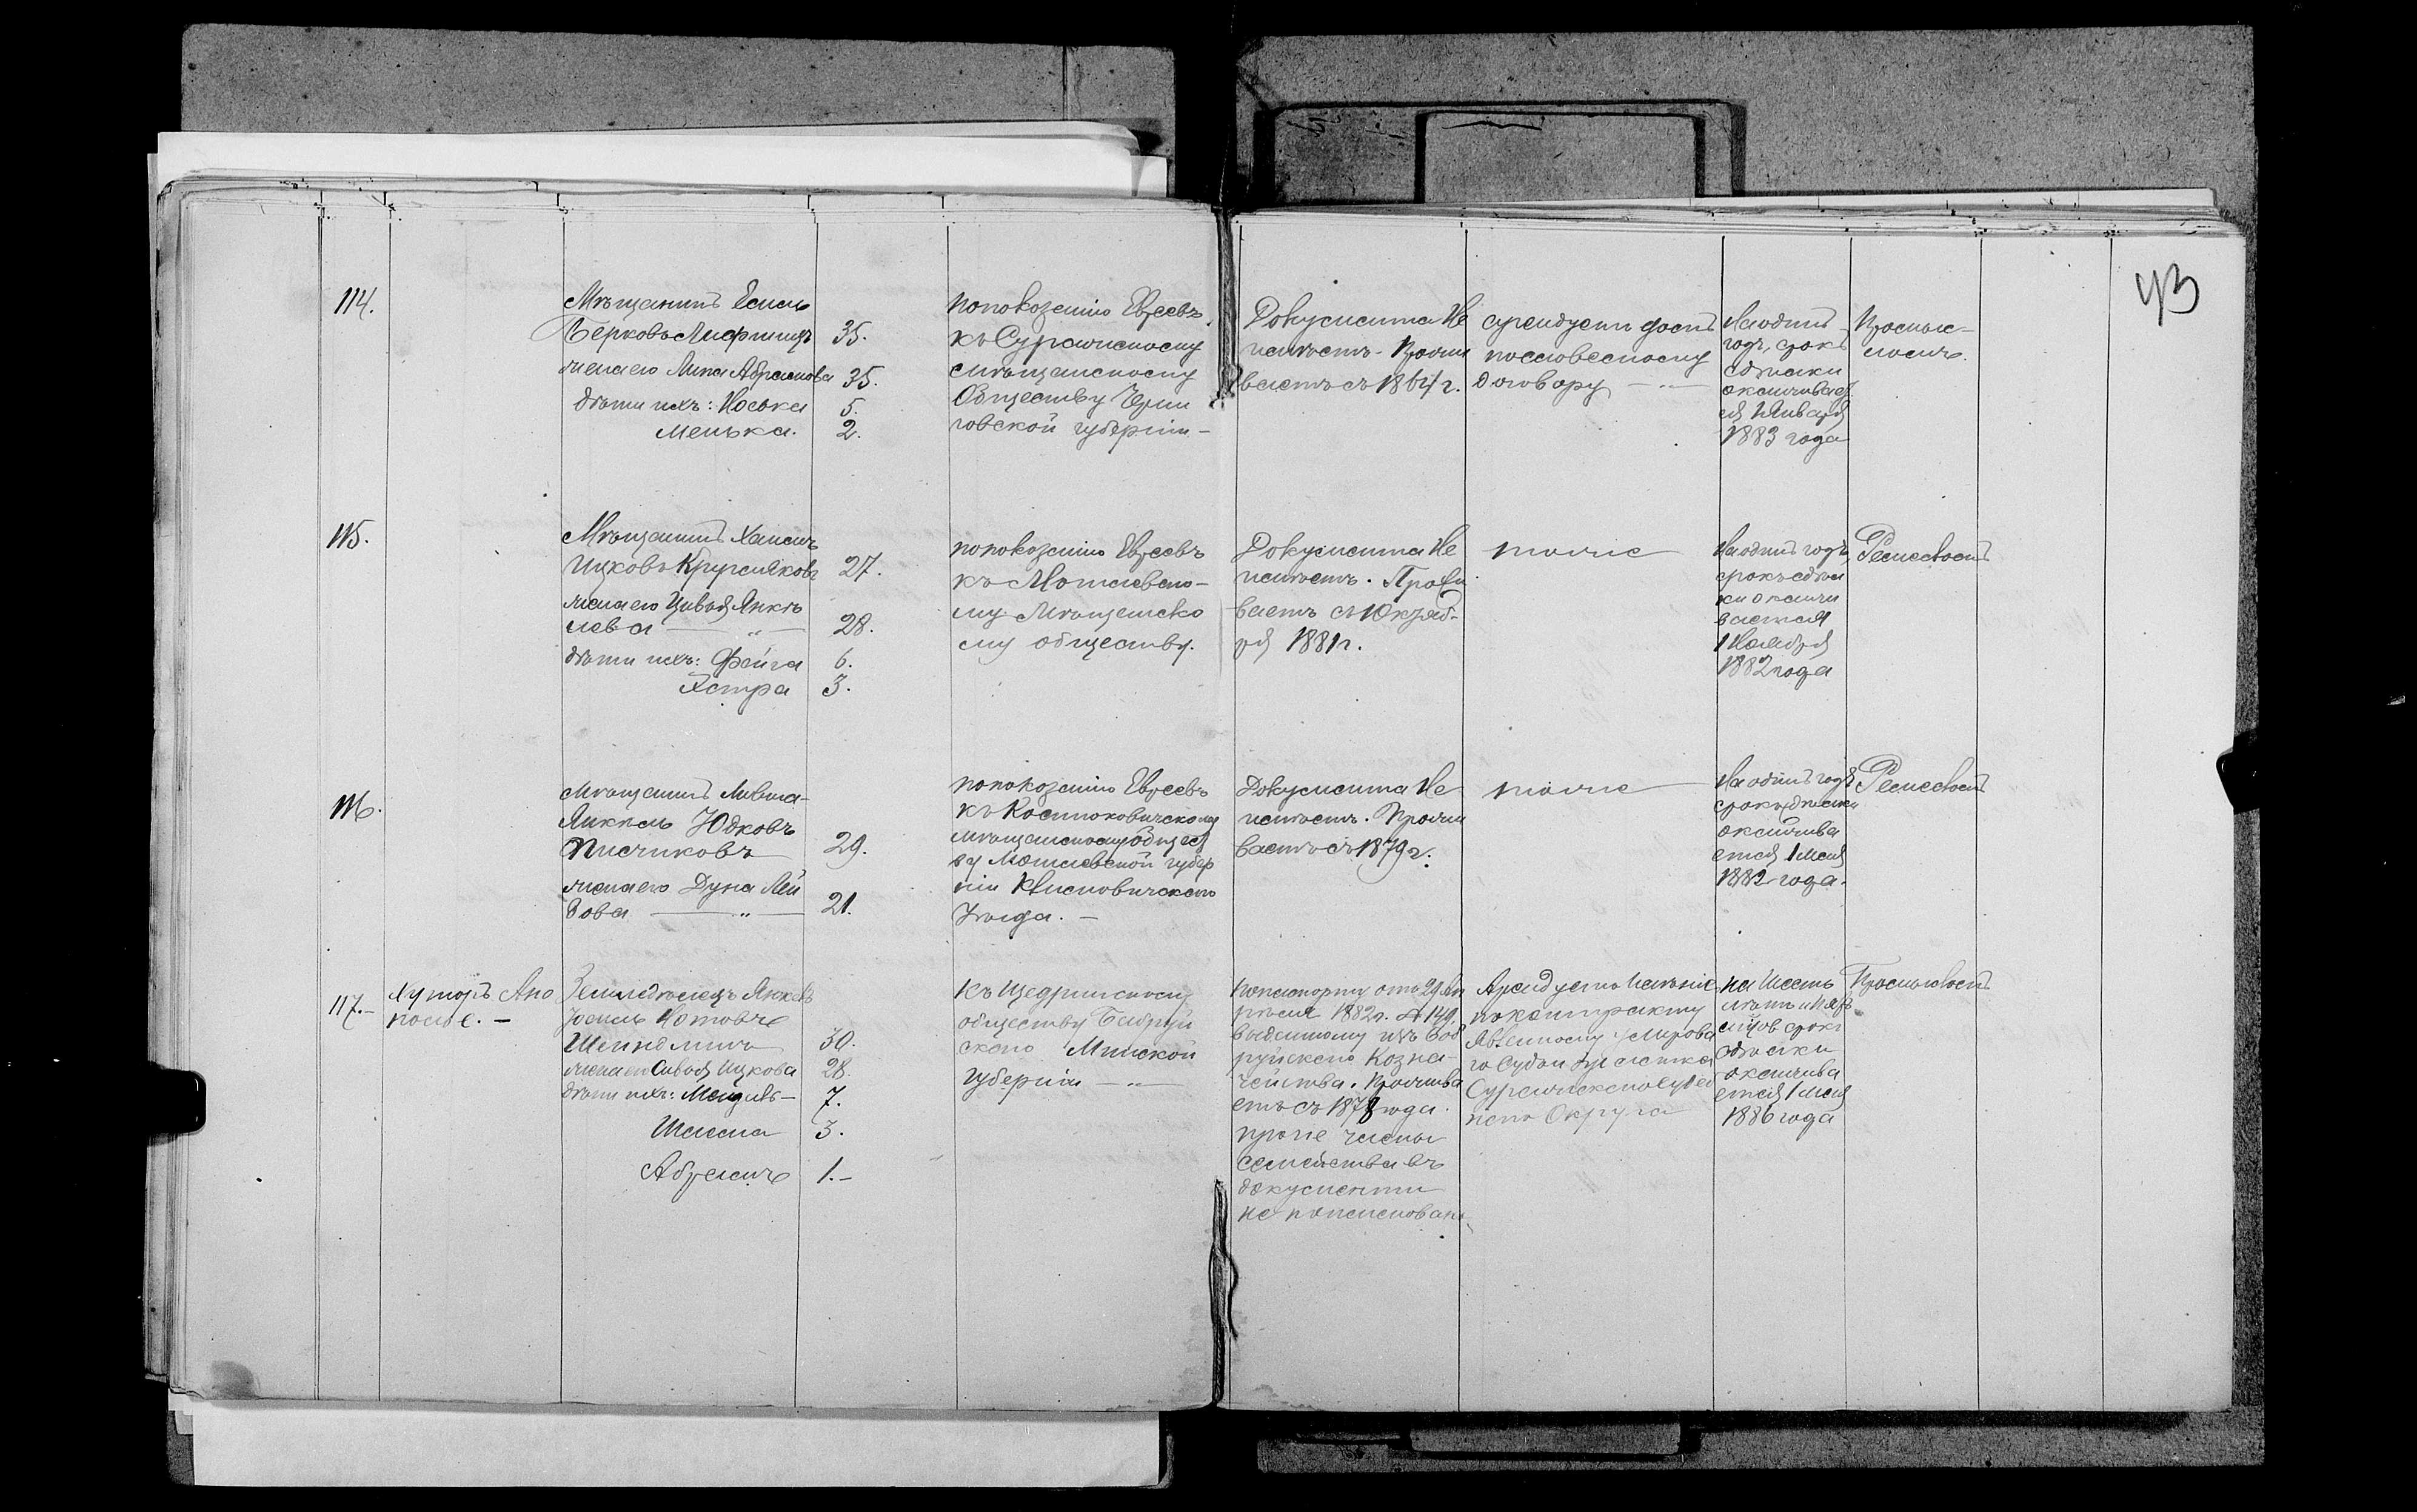 43
114.
Мѣщанинъ Есель
Берковъ Лифшицъ 35.
жена его Лина Абрамова 35.
дѣти ихъ: Носька 5.
Менька. 2.
по показанію Евреевъ
къ Суражскому
мѣщанскому
Обществу Черни
говской губерніи —
Документа не
имѣетъ. Прожи
ваетъ съ 1864 г.
арендуетъ домъ
по словесному
договору — „ —
На одинъ
годъ, срокъ
сдѣлки
оканчивает
ся 1 Января
1883 года
115.
Мѣщанинъ Хаимъ
Ицковъ 27.
жена его Цивья Янке
лева — „ — 28.
дѣти ихъ: Фейга 6.
Эстра 3.
по показанію Евреевъ
къ Могилевско-
му Мѣщанско
му обществу.
Документа не
имѣетъ. Прожи
ваетъ съ Октяб-
ря 1881 г.
тоже
На одинъ годъ,
срокъ сдѣл
ки оканчи
вается
1 Ноября
1882 года
Ремесломъ
116.
Мѣщанинъ
Янкель Юдковъ
Писчиковъ 29.
жена его Дуна Лей
бова — „ — 21.
по показанію Евреевъ
къ Костюковичскому
мѣщанскому общест
ву Могилевской губер
ніи Климовичскаго
Уѣзда. —
Документа не
имѣетъ. Прожи
ваетъ съ 1879 г.
тоже
На одинъ годъ
срокъ сдѣлки
оканчива
ется 1 Мая
1882 года.
Ремесломъ
117.—
Хуторъ Ано
полье. —
Земледѣлецъ Янкель
Іосель Нотовъ
30.
жена его Сивья Ицкова 28.
дѣти ихъ: Мендель — 7.
3.
Абрамъ 1.—
Къ Щедринскому
обществу Бобруй
скаго Минской
Губерніи — „ —
По паспорту отъ 29 Ап
рѣля 1882 г. № 149.
выданному изъ Боб
руйскаго Казна-
чейства. Прожива
етъ съ 1878 года.
прочіе члены
семейства въ
документѣ
не поименованы
Арендуетъ имѣніе
по контракту
явленному у Мирова
го Судьи участка
Суражскаго Судеб
наго Округа
на шесть
лѣтъ и
срокъ
сдѣлки
оканчива
ется 1 Мая
1886 года